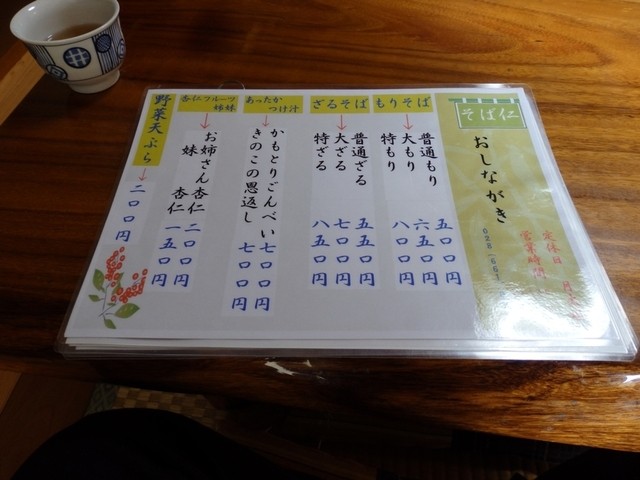 そば仁
おしながき
定休日
営業時間
もりそば
普通もり 五五〇円
大もり 六五〇円
特もり 八〇〇円
ざるそば
普通ざる 五五〇円
大ざる 七〇〇円
特ざる 八五〇円
あったか
つけ汁
かもとりごんべい 七〇〇円
きのこの恩返し 七〇〇円
杏仁フルーツ
姉妹
お姉さん杏仁 二〇〇円
妹 杏仁 一五〇円
野菜天ぷら
二〇〇円